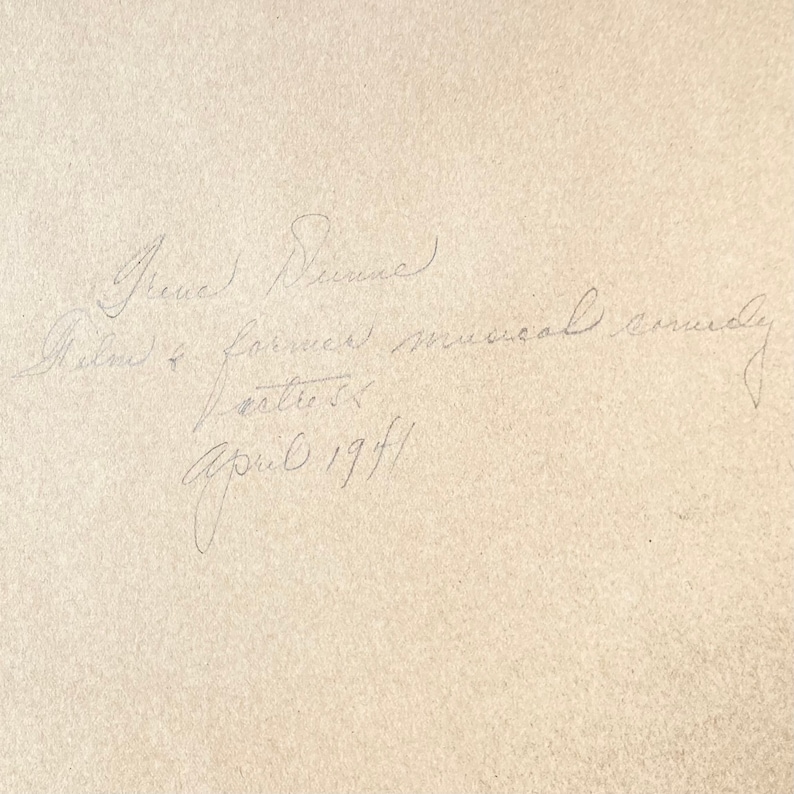 Irene Dunne
Film & former musical comedy
actress
April 1941